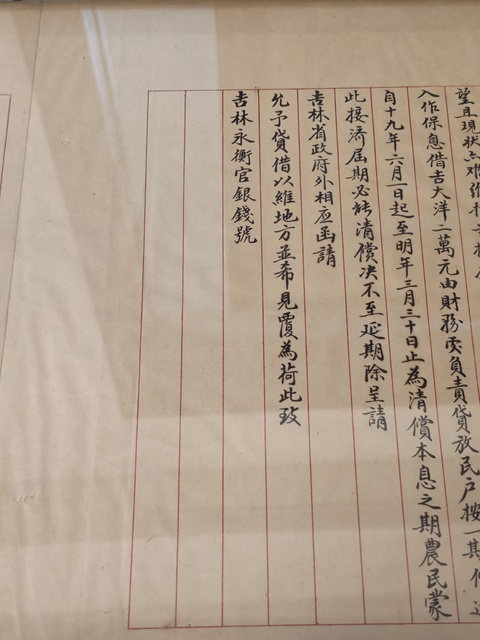 望且現狀亦難維持
入作保息借吉大洋二萬元由財務處負責貸放民戶按一期
自十九年六月一日起至明年三月三十日止為清償本息之期農民蒙
此接濟屆期必能清償决不至延期除呈請
吉林省政府外相應函請
允予貸借以維地方並希見覆為荷此致
吉林永衡官銀錢號